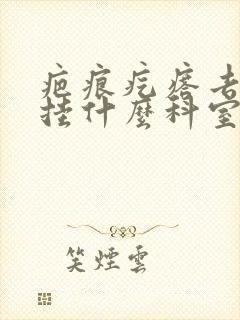 疤痕疙瘩去
挂什麼科室
笑煙雲